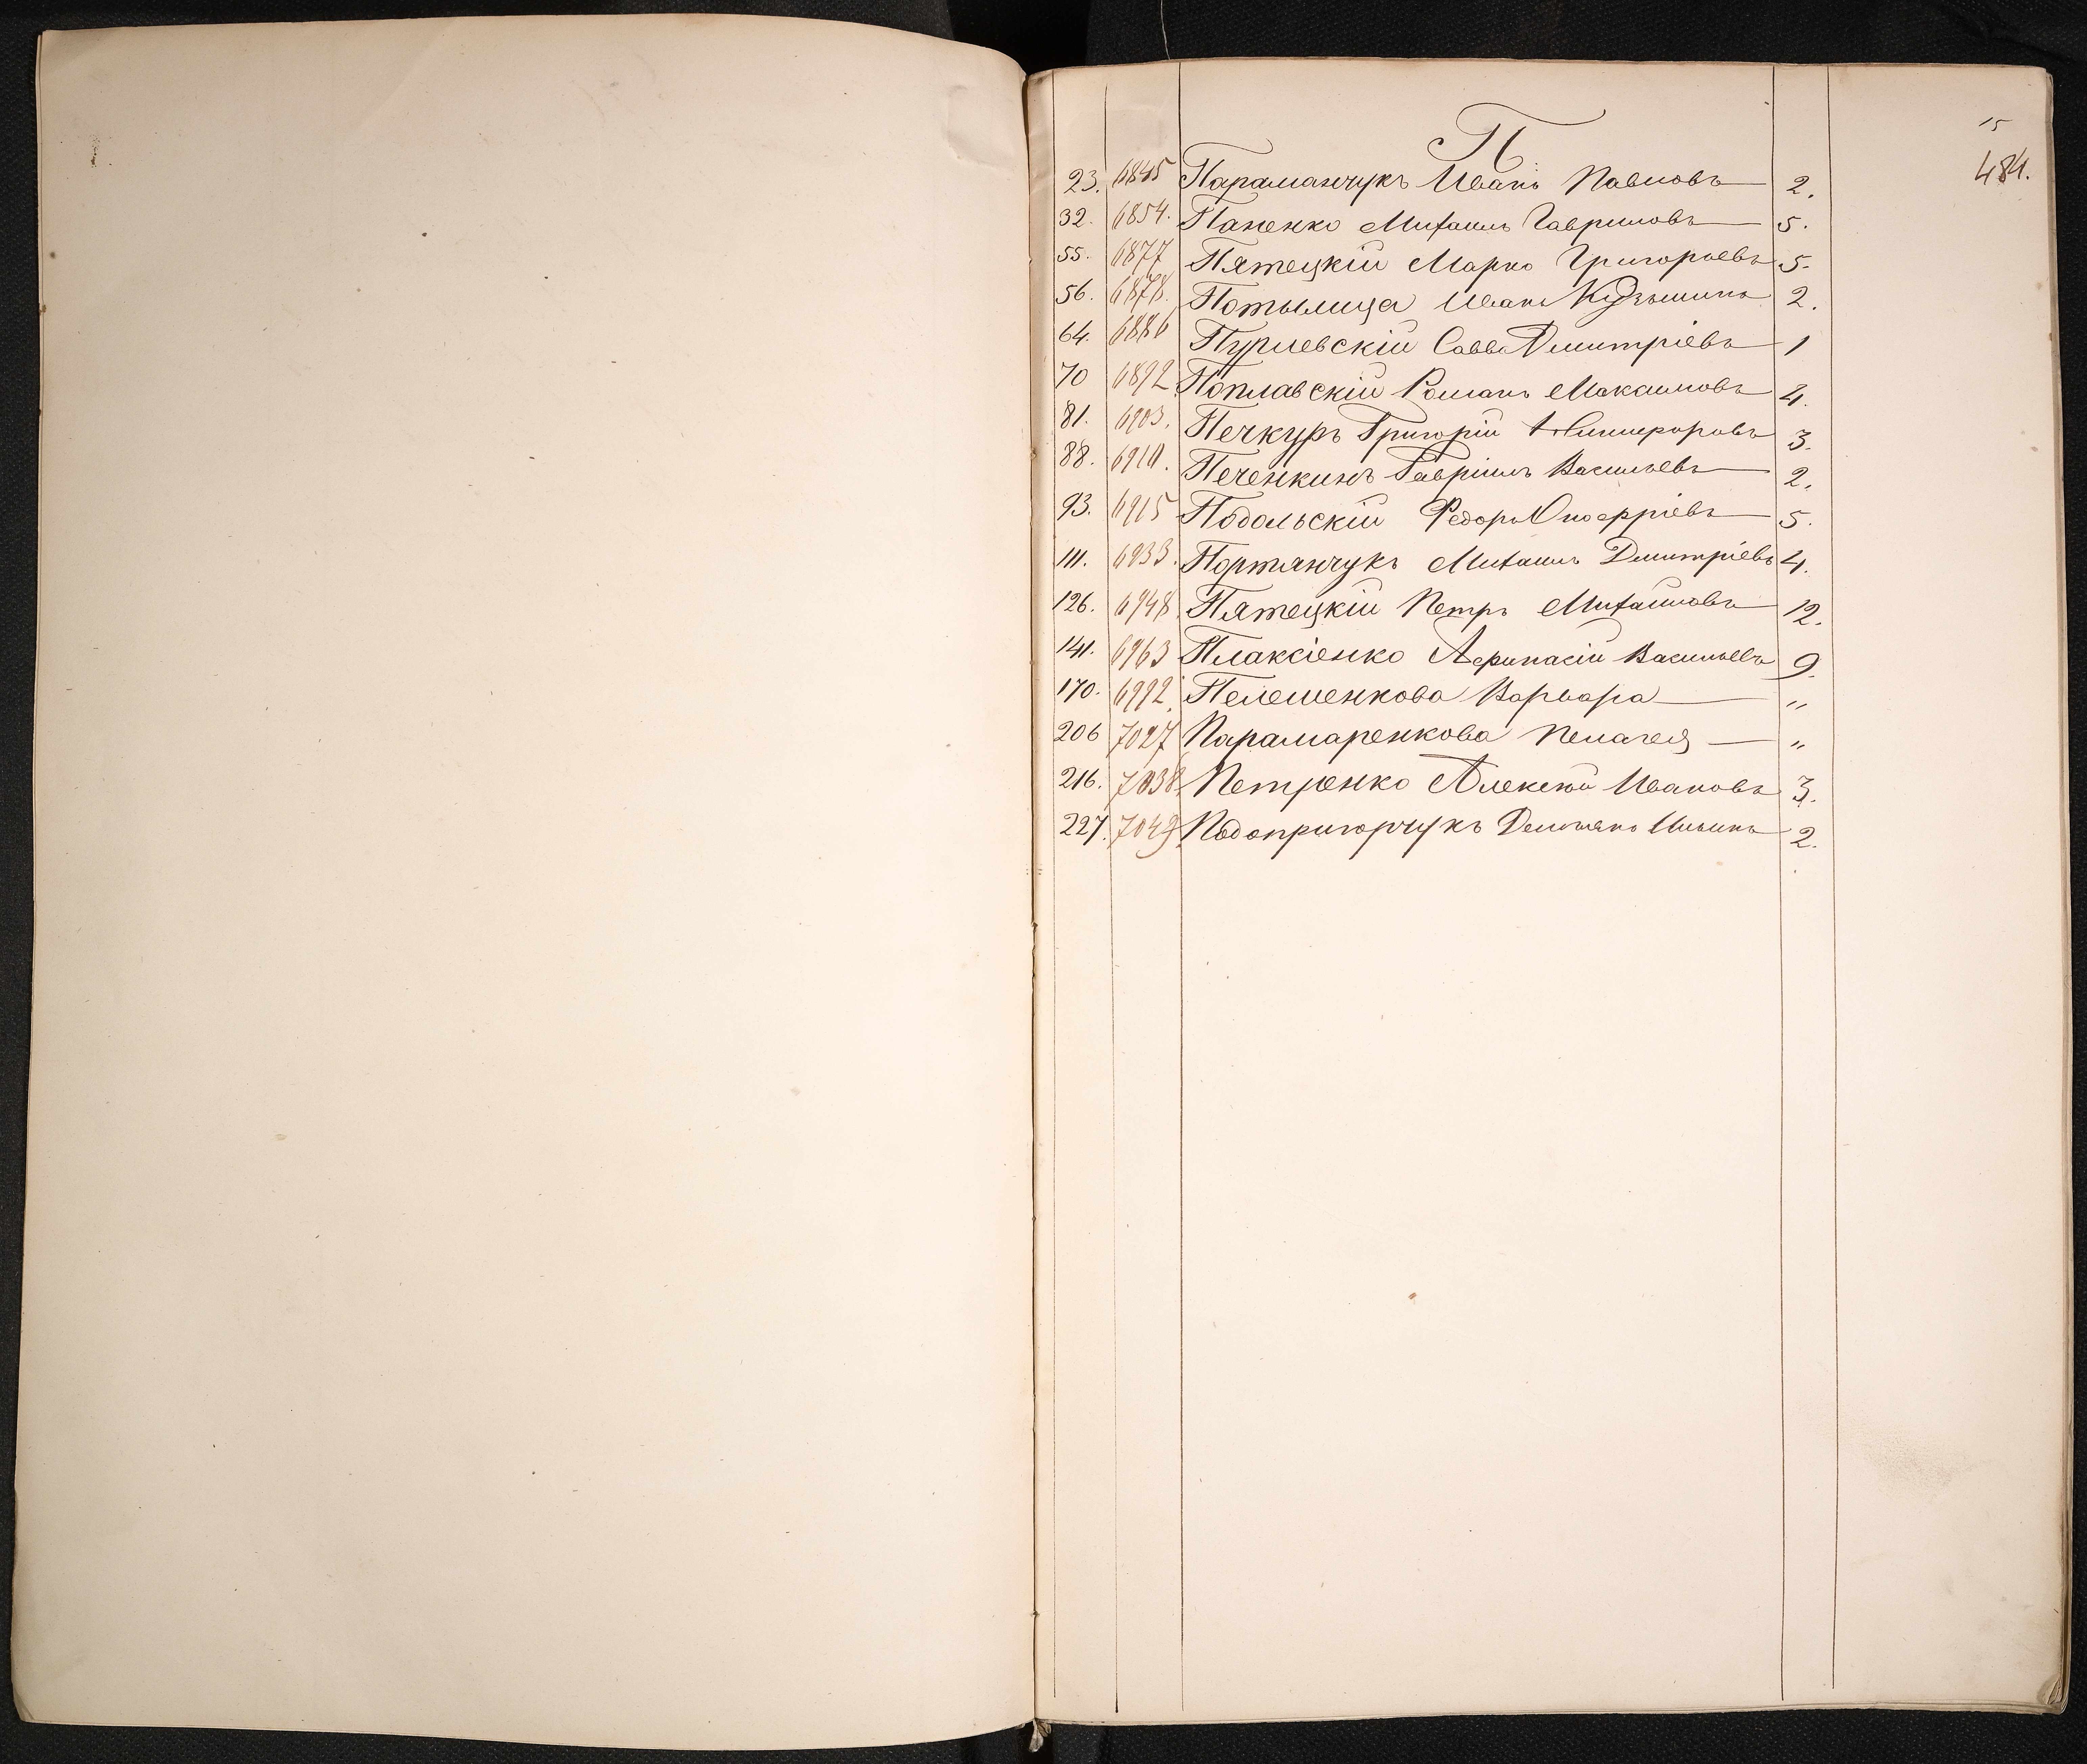 15
484.
П
23. 6845 Параманчукъ Иванъ Павловъ 2.
32. 6854. Паненко Михаилъ Гавриловъ 5.
55. 6877 Пятецкій Марко Григорьевъ 5.
56. 6878. Потылица Иванъ Кузьминъ 2.
64. 6886 Пурлевскій Савва Дмитріевъ 1
70 6892. Поплавскій Романъ Максимовъ 4.
81. 6903. Печкуръ Григорій Никифоровъ 3.
88. 6910. Печенкинъ Гавріилъ Васильевъ 2.
93. 6915 Подольскій Федоръ Онофріевъ 5.
111. 6933. Портянчукъ Михаилъ Дмитріевъ 4.
126. 6948. Пятецкій Петръ Михайловъ 12.
141. 6963 Плаксіенко Афанасій Васильевъ 9.
170. 6992. Пелешенкова Варвара "
206 7027 Парамаренкова Пелагея "
216. 7038. Петренко Алексѣй Ивановъ 3.
227. 7049. Подопригорчукъ Демьянъ Ильинъ 2.